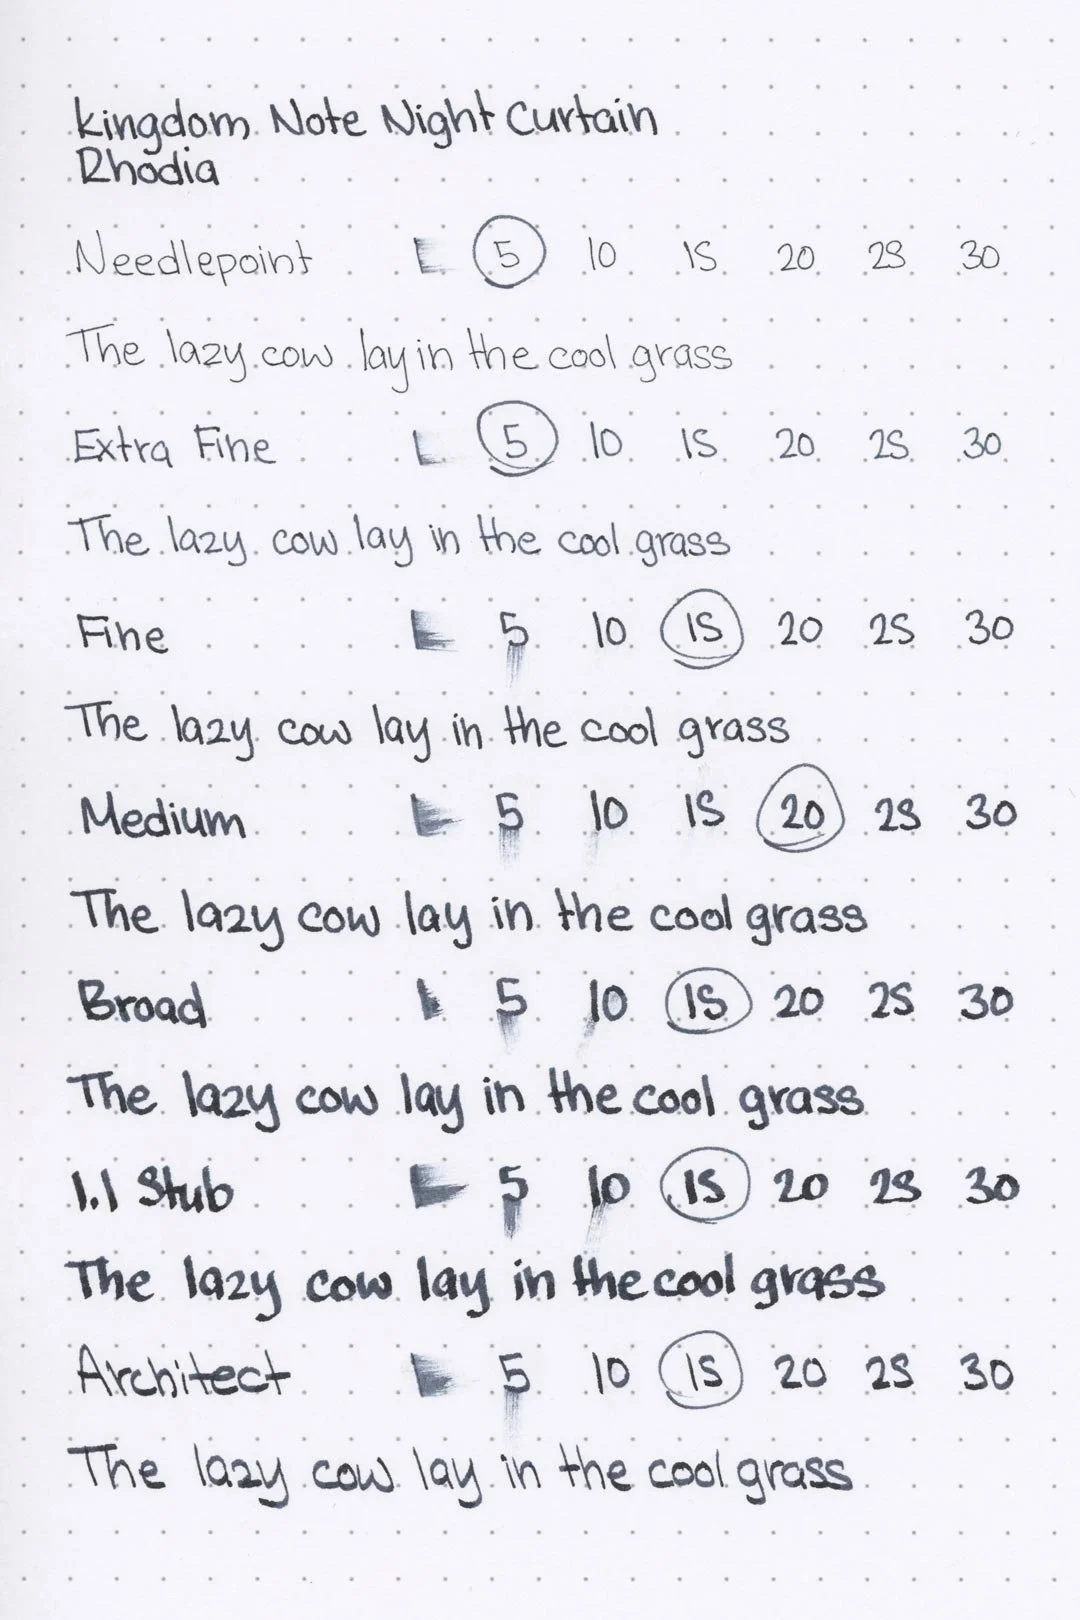 Kingdom Note Night Curtain
Rhodia
Needlepoint L 5 10 15 20 25 30
The lazy cow lay in the cool grass
Extra Fine L 5 10 15 20 25 30
The lazy cow lay in the cool grass
Fine L 5 10 15 20 25 30
The lazy cow lay in the cool grass
Medium L 5 10 15 20 25 30
The lazy cow lay in the cool grass
Broad L 5 10 15 20 25 30
The lazy cow lay in the cool grass
1.1 Stub L 5 10 15 20 25 30
The lazy cow lay in the cool grass
Architect L 5 10 15 20 25 30
The lazy cow lay in the cool grass